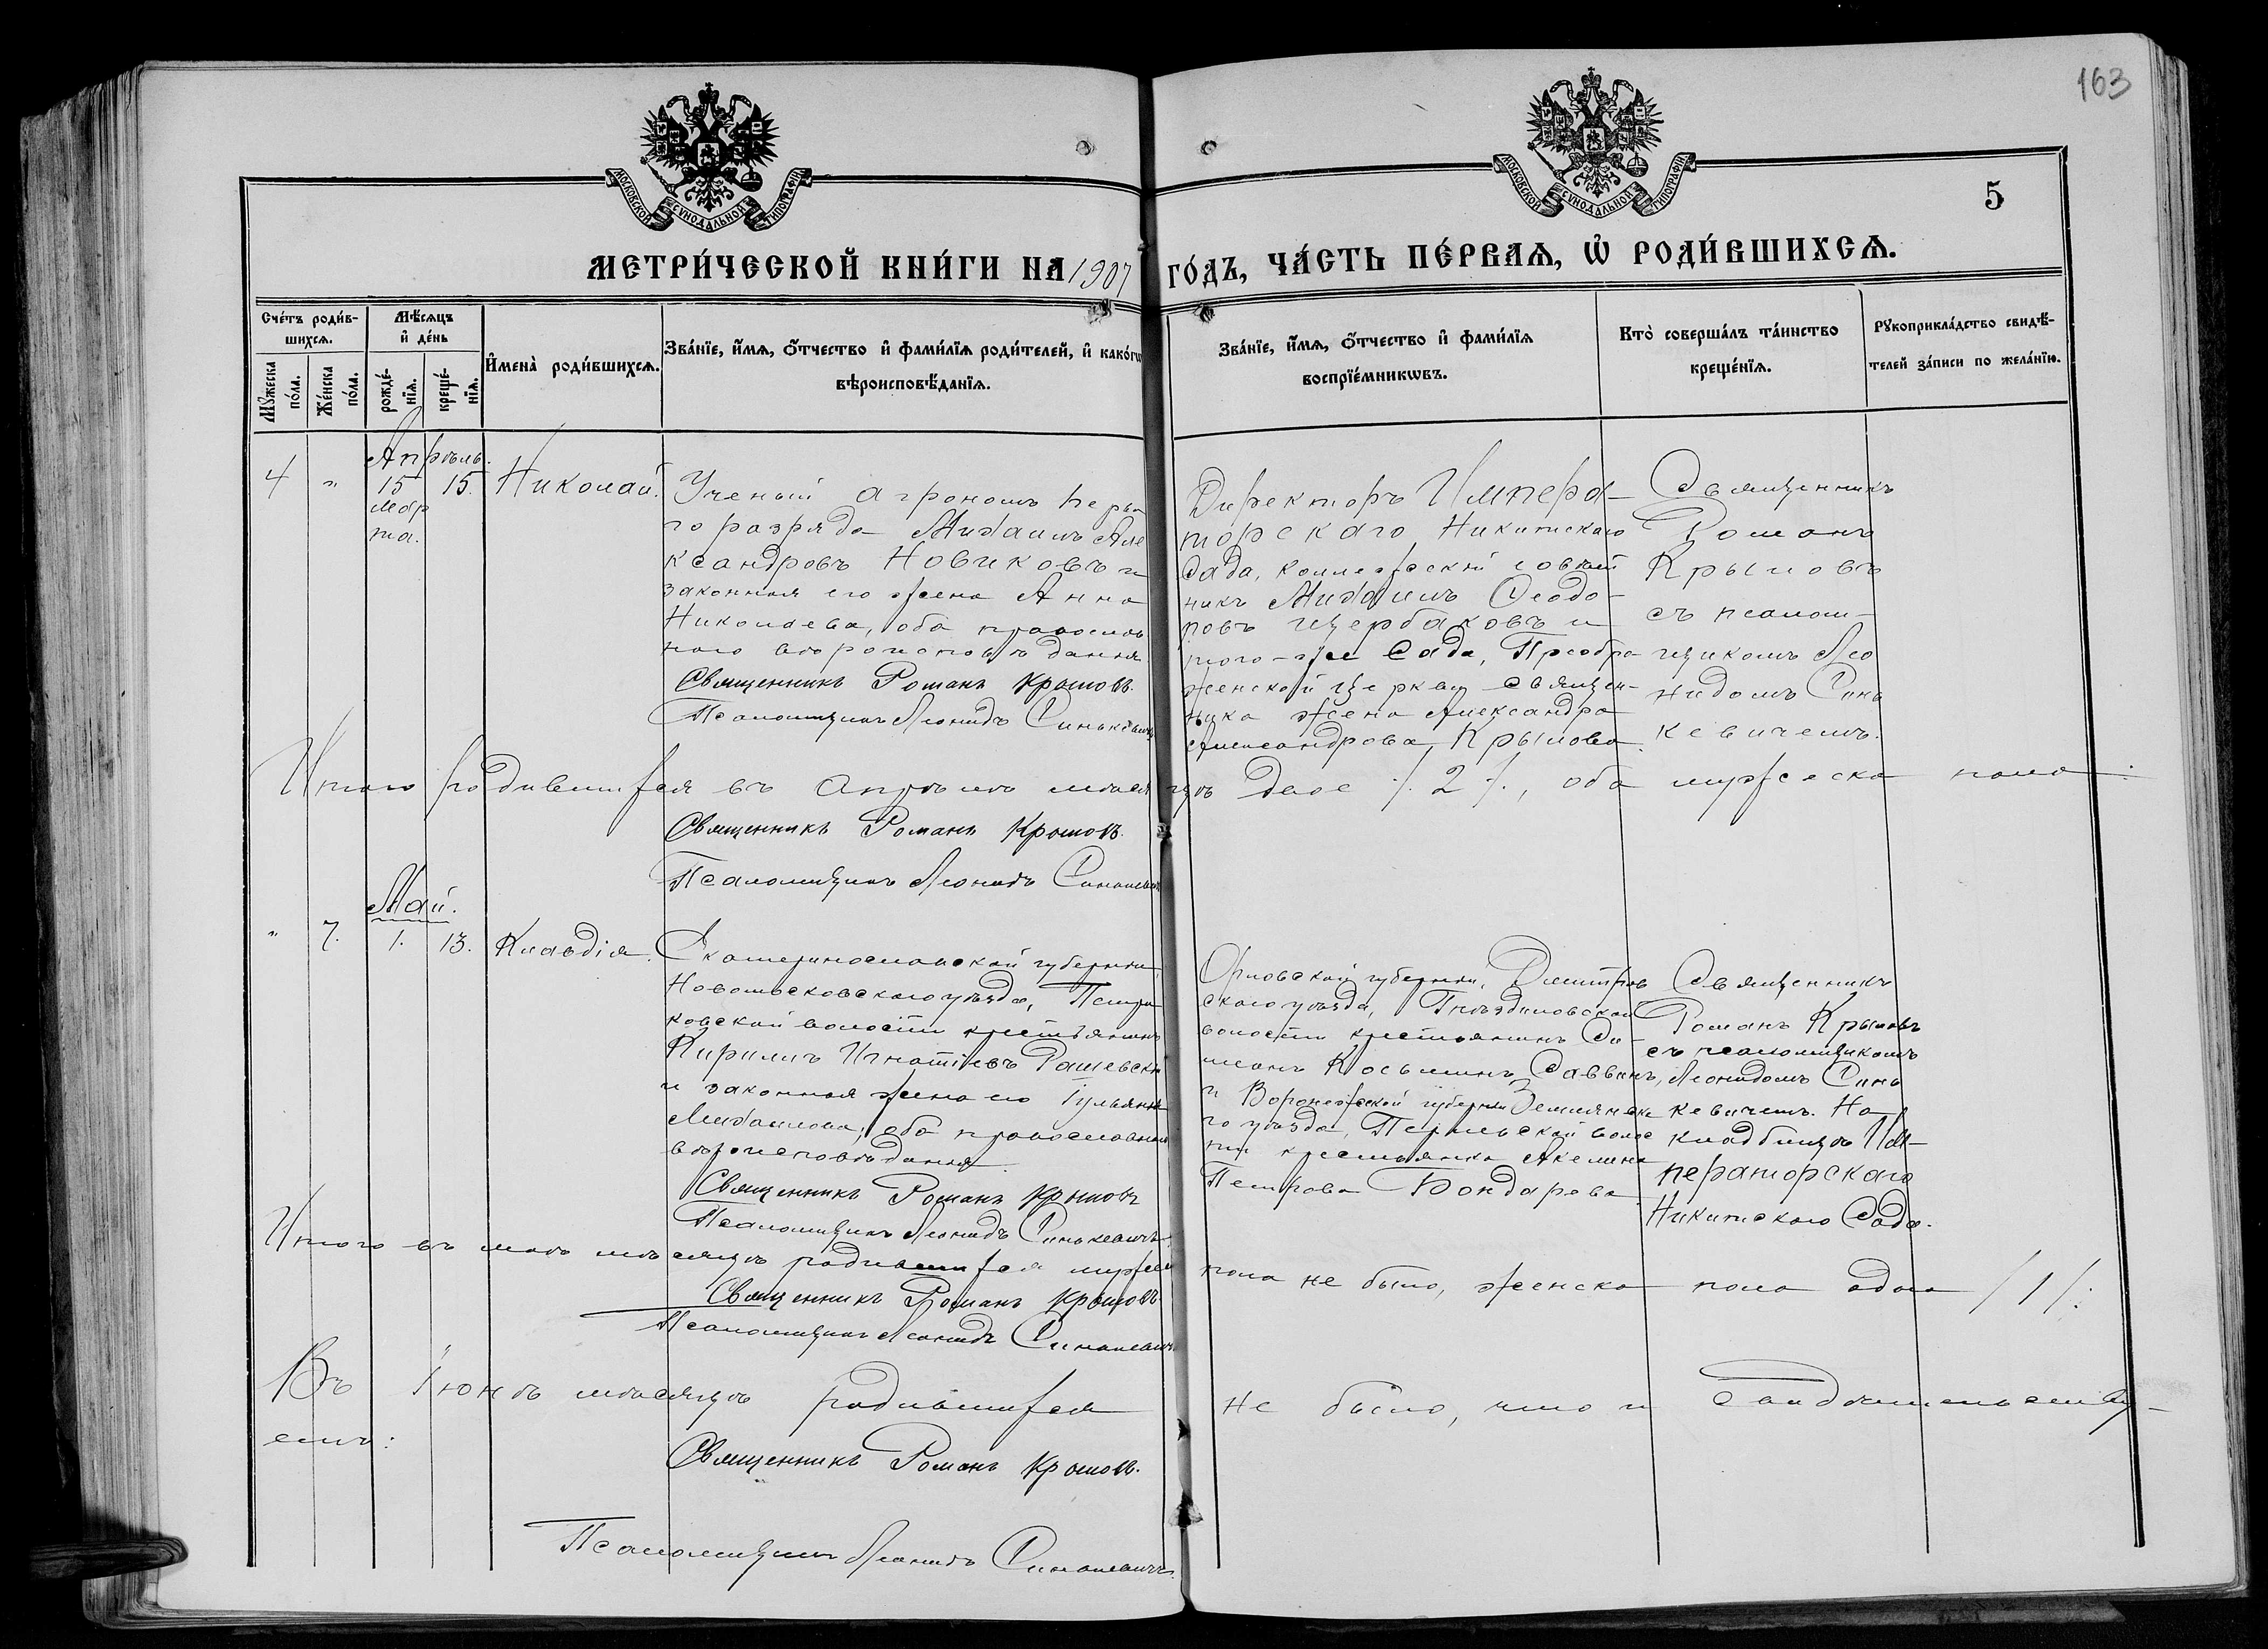 163
МОСКОВСКОЙ СѴНОДАЛЬНОЙ ТИПОГРАФІИ
МОСКОВСКОЙ СѴНОДАЛЬНОЙ ТИПОГРАФІИ
5
МЕТРИ́ЧЕСКОЙ КНИ́ГИ НА 1907 ГО́ДЪ, ЧА́СТЬ ПЕ́РВАѦ, Ѡ҆ РОДИ́ВШИХСѦ.
Сче́тъ роди́вшихсѧ.
Мꙋ́жеска по́ла.
Же́нска по́ла.
Мѣ́сѧцъ и҆ де́нь
рожде́нїѧ.
креще́нїѧ.
И҆мена̀ роди́вшихсѧ.
Зва́нїе, и҆́мѧ, ѻ҆́тчество и҆ фами́лїѧ роди́телей, и҆ како́гѡ
вѣроисповѣ́данїѧ.
Зва́нїе, и҆́мѧ, ѻ҆́тчество и҆ фами́лїѧ
воспрїе́мникѡвъ.
Кто̀ соверша́лъ та́инство
креще́нїѧ.
Рꙋкоприкла́дство свидѣ́-
телей за́писи по жела́нїю.
Апрѣль.
4 " 15 15. Николай.
мар
та.
Ученый агрономъ перва
го разряда Михаилъ Але
ксандровъ Новиковъ и
законная его жена Анна
Николаева, оба православ
наго вѣроисповѣданія
Священникъ Романъ Крыловъ.
Псаломщикъ Леонидъ Синькевичъ
Директоръ Импера-
торскаго Никитскаго
Сада, коллежскій совѣт
никъ Михаилъ Ѳеодо-
ровъ Щербаковъ и
того-же Сада, Преобра
женской церкви священ-
ника жена Александра
Александрова Крылова.
Священникъ
Романъ
Крыловъ
съ псалом-
щикомъ Лео
нидомъ Синь
кевичемъ.
Итого родившихся въ Апрѣлѣ мѣсяцѣ двое /. 2 /., оба мужеска пола.
Священникъ Романъ Крыловъ.
Псаломщикъ Леонидъ Синькевичъ
Май.
" 7. 1. 13. Клавдія.
Екатеринославской губерніи
Новомосковскаго уѣзда, Петри
ковской волости крестьянинъ
Кириллъ Игнатіевъ Рашевскі
и законная жена его Іульянія
Михаилова, оба православнаго
вѣроисповѣданія
Священникъ Романъ Крыловъ
Псаломщикъ Леонидъ Синькевичъ
Орловской губерніи, Дмитров
скаго уѣзда, Гнѣздиловской
волости крестьянинъ Си-
меонъ Косьминъ Саввинъ,
и Воронежской губерніи Землянска
го уѣзда, волос
ти крестьянка Акилина
Петрова Бондарева
Священникъ
Романъ Крыловъ
съ псаломщикомъ
Леонидомъ Синь
кевичемъ. На
кладбищѣ Им-
ператорскаго
Никитскаго Сада.
Итого въ маѣ мѣсяцѣ родившихся мужеска пола не было, женска пола одна / 1 /.
Священникъ Романъ Крыловъ
Псаломщикъ Леонидъ Синькевичъ
Въ Іюнѣ мѣсяцѣ родившихся не было, что и свидѣтельству-
емъ:
Священникъ Романъ Крыловъ.
Псаломщикъ Леонидъ Синькевичъ.